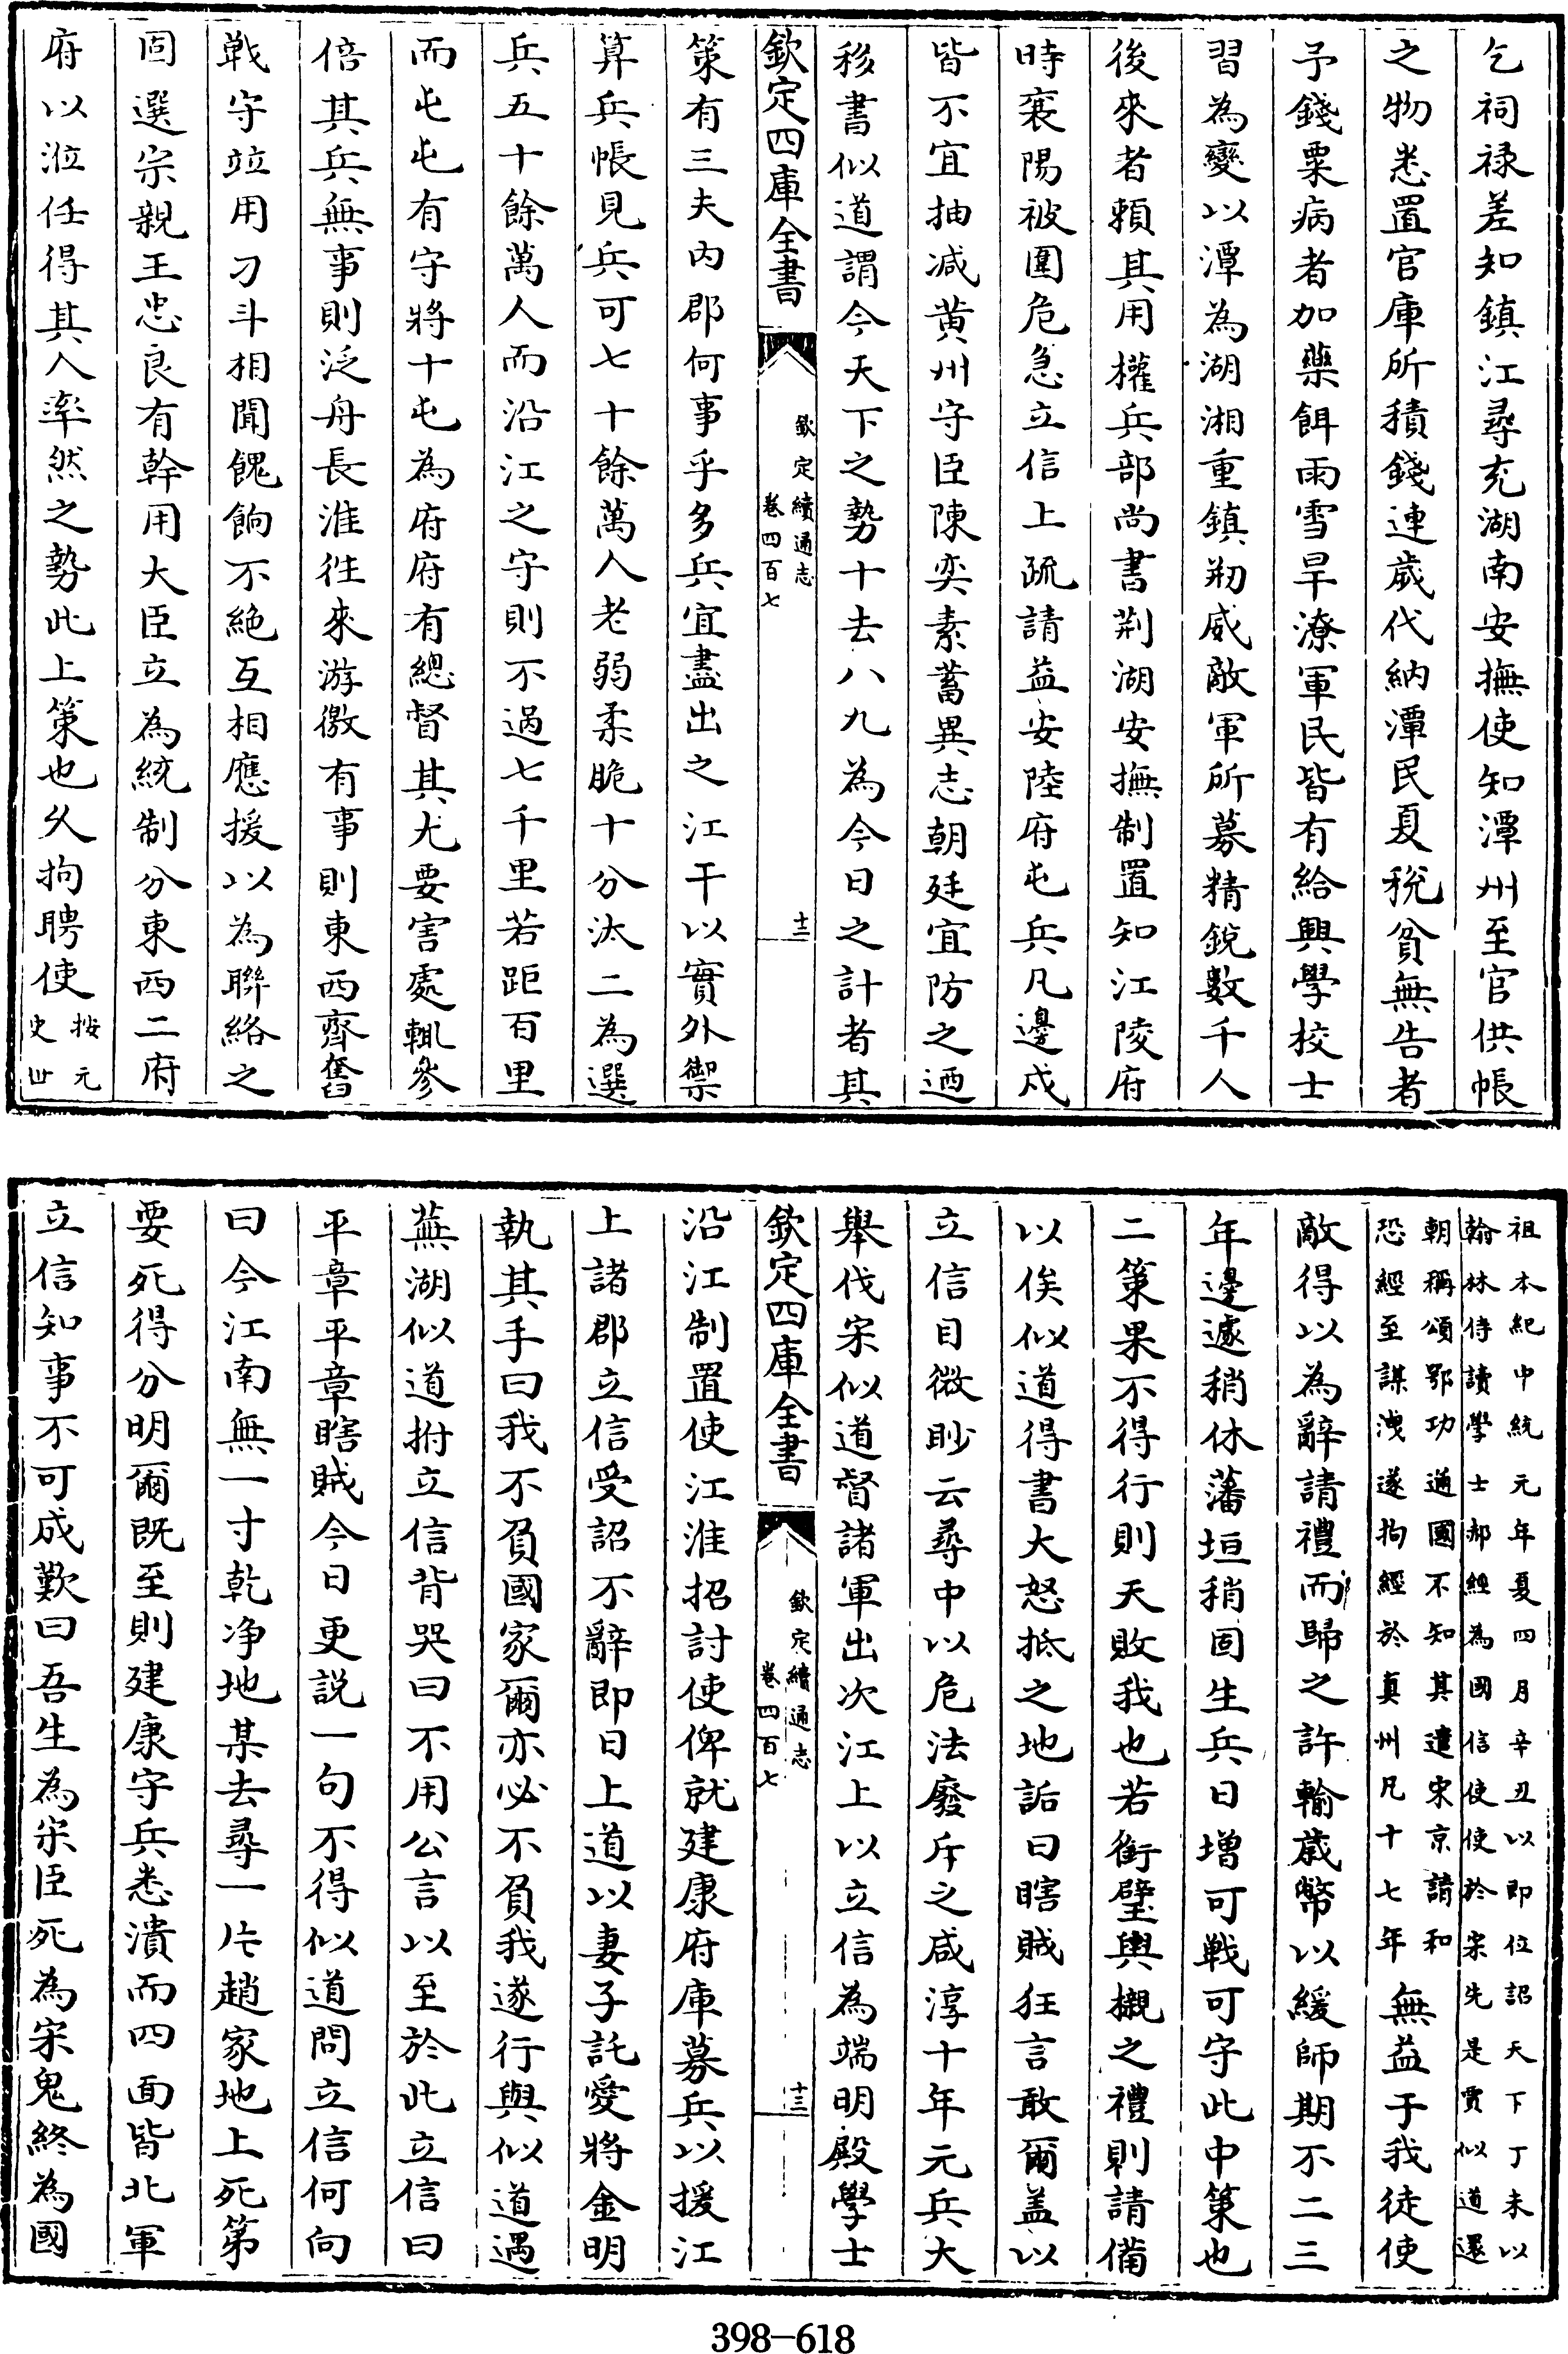 乞祠祿差知鎮江尋充湖南安撫使知潭州至官供帳
之物悉置官庫所積錢連歲代納潭民夏稅貧無告者
予錢粟病者加藥餌雨雪旱潦軍民皆有給興學校士
習為變以潭為湖湘重鎮刱威敵軍所募精銳數千人
後來者賴其用權兵部尚書荆湖安撫制置知江陵府
時襄陽被圍危急立信上疏請益安陸府屯兵凡邊戍
皆不宜抽减黄州守臣陳奕素蓄異志朝廷宜防之迺
移書似道謂今天下之勢十去八九為今日之計者其
欽定四庫全書
欽定續通志
卷四百七
十二
策有三夫内郡何事乎多兵宜盡出之江干以實外禦
算兵帳見兵可七十餘萬人老弱柔脆十分汰二為選
兵五十餘萬人而沿江之守則不過七千里若距百里
而屯屯有守將十屯為府府有總督其尤要害處輒參
倍其兵無事則泛舟長淮徃來游徼有事則東西齊奮
戰守竝用刁斗相聞餽餉不絶互相應援以為聯絡之
固選宗親王忠良有幹用大臣立為統制分東西二府
府以涖任得其人率然之勢此上策也久拘聘使按元
史世
祖本紀中統元年夏四月辛丑以即位詔天下丁未以
翰林侍讀學士郝經為國信使使於宋先是賈似道還
朝稱頌鄂功通國不知其遣宋京請和
恐經至謀洩遂拘經於真州凡十七年無益于我徒使
敵得以為辭請禮而歸之許輸歲幣以緩師期不二三
年邊遽稍休藩垣稍固生兵日增可戰可守此中策也
二策果不得行則天敗我也若銜璧輿櫬之禮則請備
以俟似道得書大怒抵之地詬曰瞎賊狂言敢爾蓋以
立信目微眇云尋中以危法廢斥之咸淳十年元兵大
舉伐宋似道督諸軍出次江上以立信為端明殿學士
欽定四庫全書
欽定續通志
卷四百七
十三
沿江制置使江淮招討使俾就建康府庫募兵以援江
上諸郡立信受詔不辭即日上道以妻子託愛將金明
執其手曰我不負國家爾亦必不負我遂行與似道遇
蕪湖似道拊立信背哭曰不用公言以至於此立信曰
平章平章瞎賊今日更説一句不得似道問立信何向
曰今江南無一寸乾净地某去尋一片趙家地上死第
要死得分明爾既至則建康守兵悉潰而四面皆北軍
立信知事不可成歎曰吾生為宋臣死為宋鬼終為國
398-618